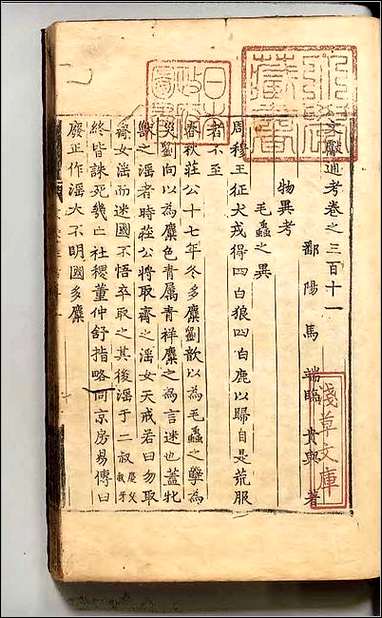 文獻通考卷之三百十一
鄱陽馬端臨貴與著
物異考
毛蟲之異
周穆王征犬戎得四白狼四白鹿以歸自是荒服
者不至
春秋莊公十七年冬多麋劉歆以為毛蟲之孽為
災劉向以為麋色青屬青祥麋之為言迷也蓋牝
獸之淫者時莊公將取齊之淫女天戒若曰勿取
齊女淫而迷國不悟卒取之其後淫于二叔慶父叔牙
終皆誅死幾亡社稷董仲舒指略同京房易傳曰
廢正作淫大不明國多麋
淺草文庫